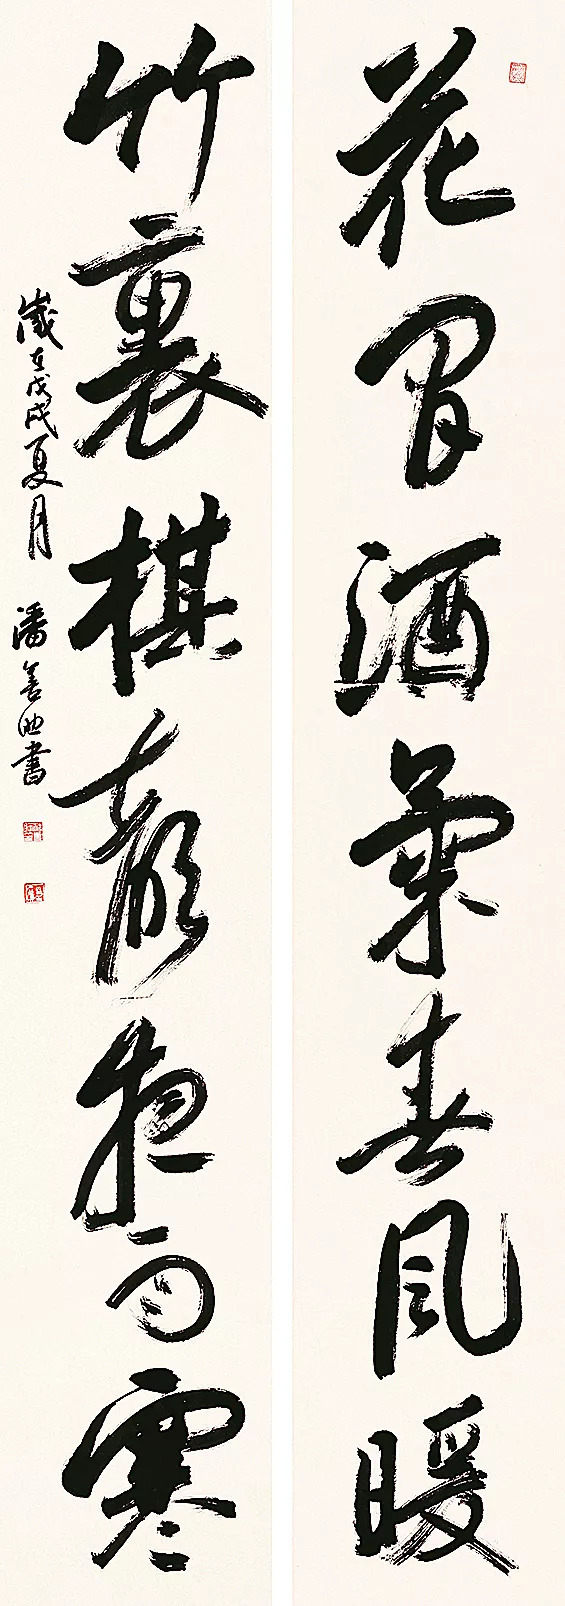 花間酒氣春風暖
竹裏棋聲夜雨寒
歲在戊戌夏月 潘善助書